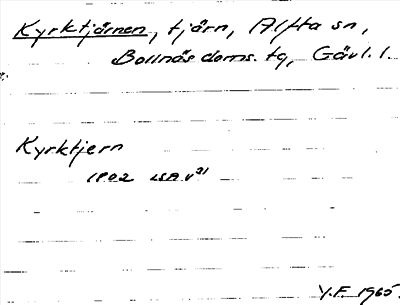 Kyrktjärnen, tjärn, Alfta sn,
Bollnäs doms. tg, Gävl. l.
Kyrktjern
1902 LSA V31
Y.F. 1965.